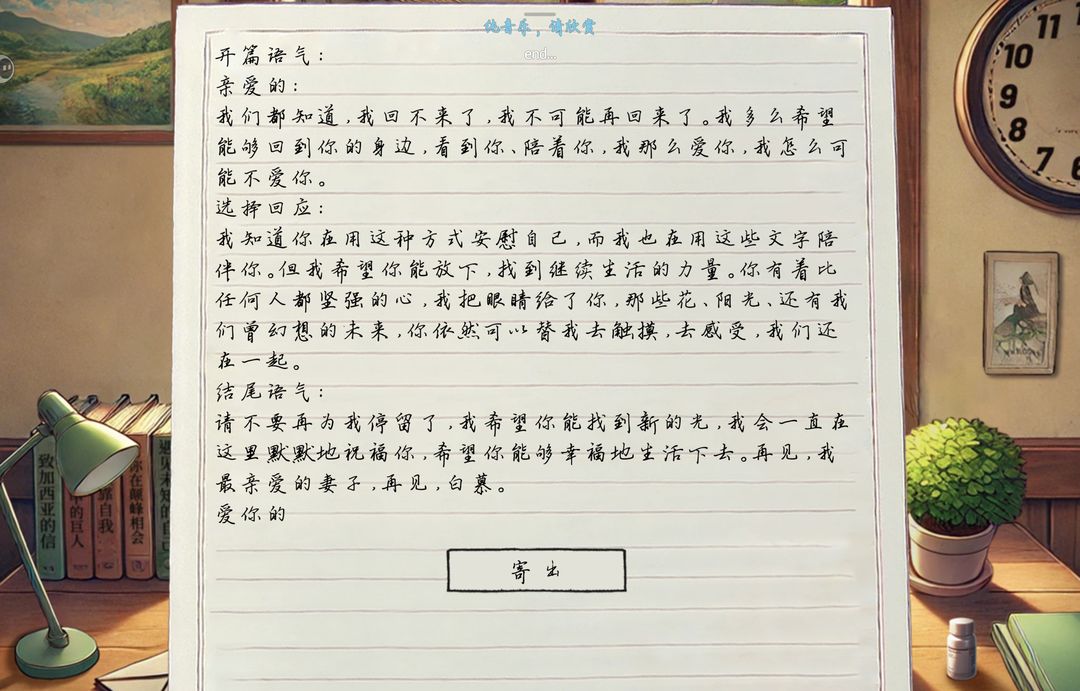 纯音乐，请欣赏
end...
开篇语气：
亲爱的：
我们都知道，我回不来了，我不可能再回来了。我多么希望
能够回到你的身边，看到你、陪着你，我那么爱你，我怎么可
能不爱你。
选择回应：
我知道你在用这种方式安慰自己，而我也在用这些文字陪
伴你。但我希望你能放下，找到继续生活的力量。你有着比
任何人都坚强的心，我把眼睛给了你，那些花、阳光、还有我
们曾幻想的未来，你依然可以替我去触摸，去感受，我们还
在一起。
结尾语气：
请不要再为我停留了，我希望你能找到新的光，我会一直在
这里默默地祝福你，希望你能够幸福地生活下去。再见，我
最亲爱的妻子，再见，白慕。
爱你的
寄出
致加西亚的信
中的巨人
靠自我
你在巅峰相会
遇见未知的自己
11
10
9
8
7
6